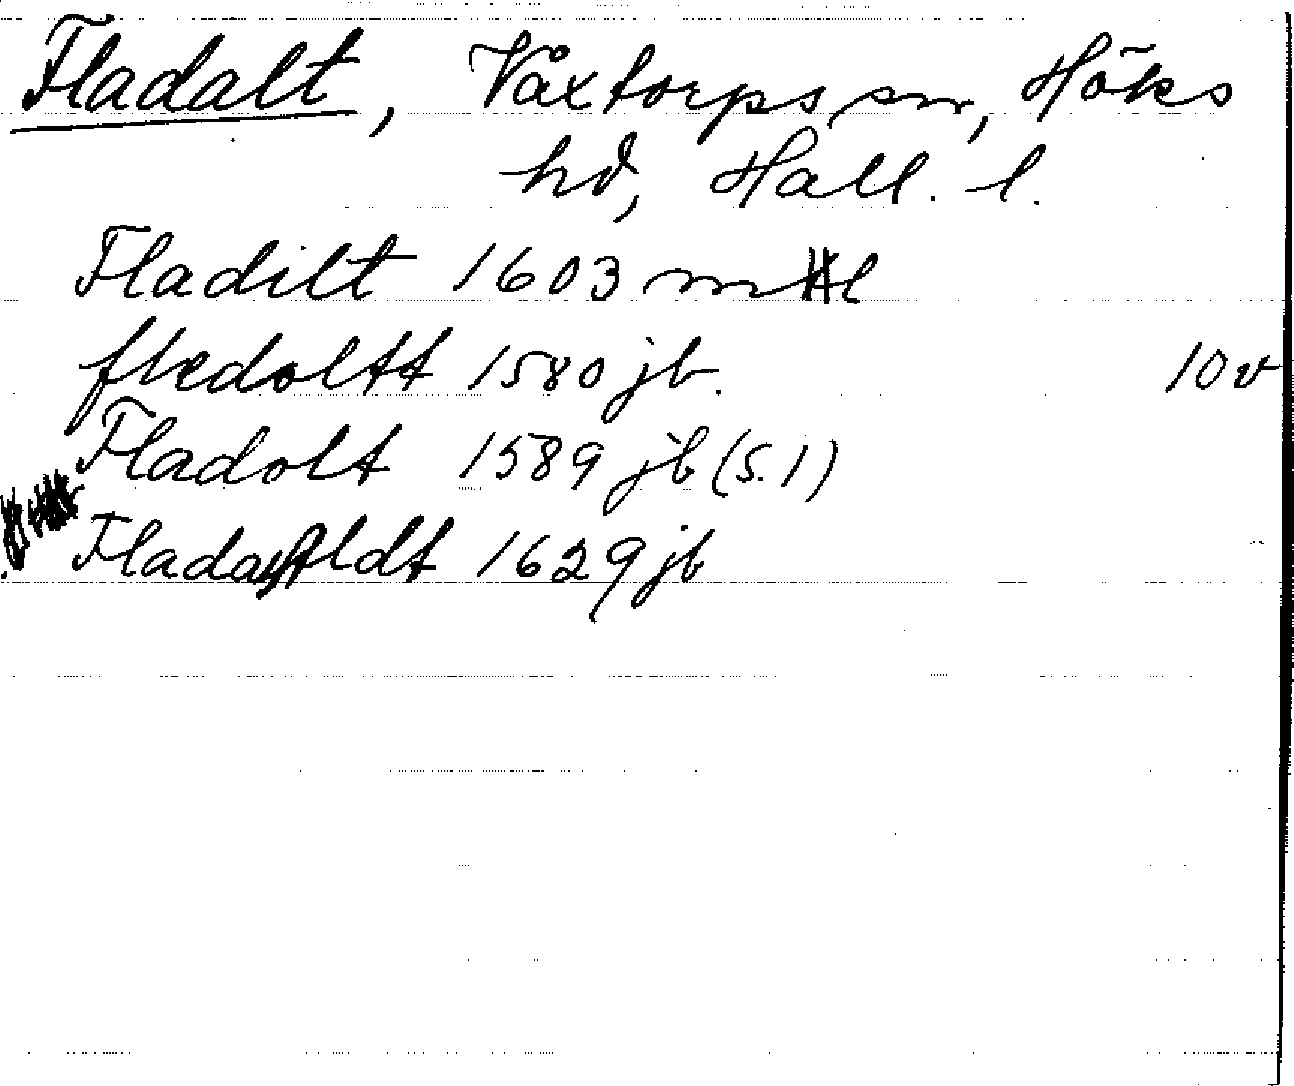 Fladalt, Våxtorps sn, Höks
hd, Hall. l.
Fladilt 1603 m Hl
fledoltt 1580 jb. 10 v
Fladolt 1589 jb (S. 1)
1629 jb